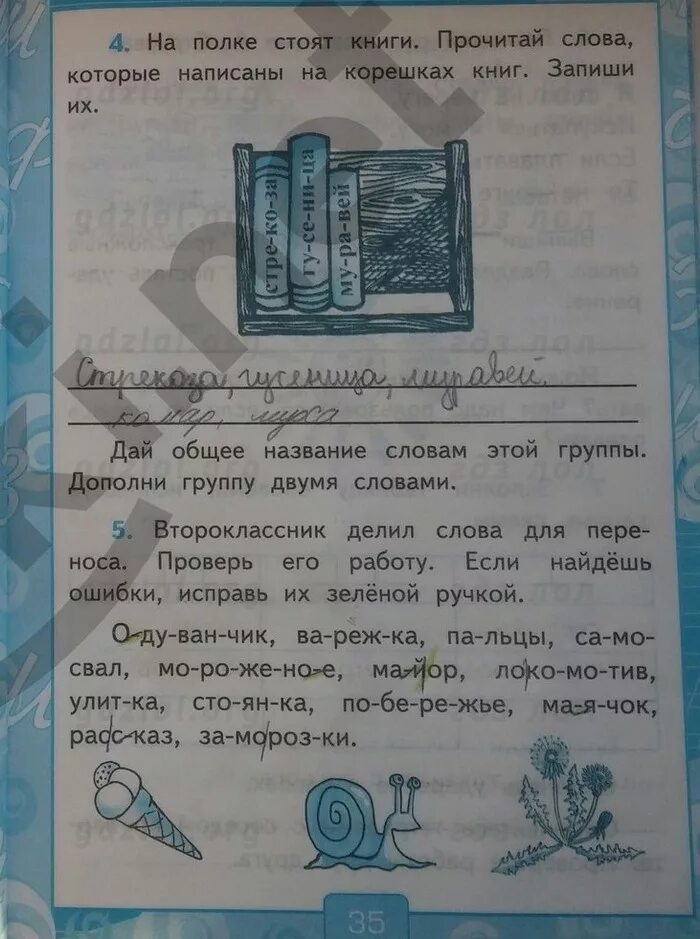 4. На полке стоят книги. Прочитай слова,
которые написаны на корешках книг. Запиши
их.
стре-ко-за
гу-се-ни-ца
му-ра-вей
Стрекоза, гусеница, муравей.
комар, муха
Дай общее название словам этой группы.
Дополни группу двумя словами.
5. Второклассник делил слова для пере-
носа. Проверь его работу. Если найдёшь
ошибки, исправь их зелёной ручкой.
О-ду-ван-чик, ва-реж-ка, па-льцы, са-мо-
свал, мо-ро-же-но-е, ма-йор, ло-ко-мо-тив,
улит-ка, сто-ян-ка, по-бе-ре-жье, ма-я-чок,
расс-каз, за-мо-роз-ки.
35